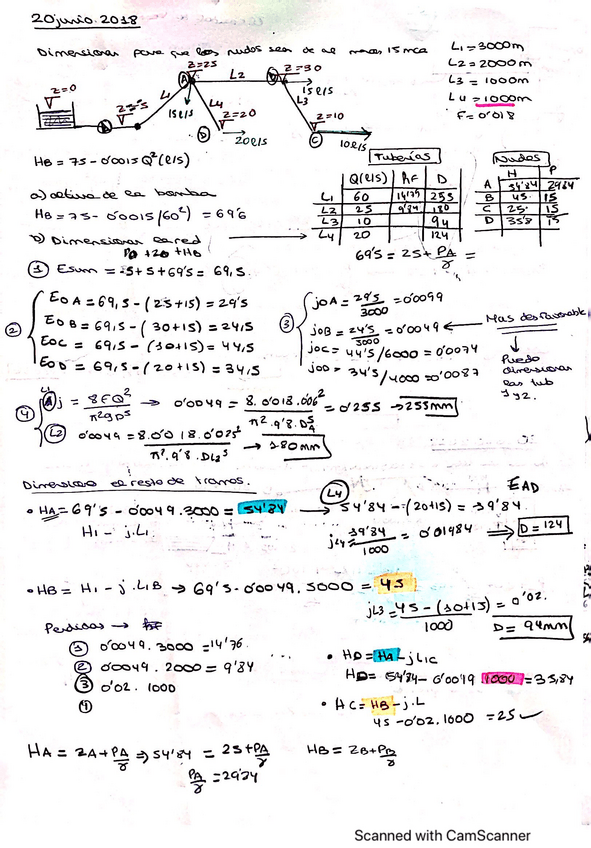 20 junio. 2018
Dimensionar para que los nudos sean de al menos 15 mca
L1 = 3000m
L2 = 2000m
L3 = 1000m
L4 = 1000m
F = 0'018
z=0
z=-5
z=25
A
L1
L2
B
z=30
15 l/s
15 l/s
L4
L3
z=20
D
20 l/s
z=10
C
10 l/s
HB = 75 - 0'0015 Q² (l/s)
a) altura de la bomba
HB = 75 - 0'0015 (60²) = 69'6
b) Dimensionar la red
Tuberías
Q(l/s) ΔF D
L1 60 14'75 255
L2 25 9'84 180
L3 10 94
L4 20 124
Nudos
H P
A 54'84 29'84
B 45 15
C 25 15
D 35'8 15
69'5 = 25 + PA/γ =
① Esum = -5 + 5 + 69'5 = 69,5
②
EOA = 69,5 - (25+15) = 29'5
EOB = 69,5 - (30+15) = 24,5
EOC = 69,5 - (10+15) = 44,5
EOD = 69,5 - (20+15) = 34,5
③
jOA = 29'5/3000 = 0'0099
jOB = 24'5/5000 = 0'0049 ← Mas desfavorable
jOC = 44'5/6000 = 0'0074
jOD = 34'5/4000 = 0'0087
Puedo dimensionar las tub 1 y 2.
④
L1 j = 8FQ²/π²gD⁵ → 0'0049 = 8.0'018.006²/π².9'8.D⁵ = 0'255 → 255mm
L2 0'0049 = 8.0'018.0'025²/π².9'8.DL2⁵ → 180mm
Dimensiono el resto de tramos.
• HA = 69'5 - 0'0049.3000 = 54'84
H1 - j.L1
L4
54'84 - (20+15) = 19'84
EAD
jL4 = 19'84/1000 = 0'01984 ⟹ D = 124
• HB = H1 - j.L1B → 69'5 - 0'0049.5000 = 45
jL3 = 45 - (10+15)/1000 = 0'02.
D = 94mm
Perdidas →
① 0'0049.3000 = 14'76
② 0'0049.2000 = 9'84
③ 0'02.1000
④
• HD = HA - jL1C
HD = 54'84 - 0'0019 1000 = 35,84
• HC = HB - j.L
45 - 0'02.1000 = 25
HA = ZA + PA/γ ⟹ 54'84 = 25 + PA/γ
PA/γ = 29'84
HB = ZB + PB/γ
Scanned with CamScanner